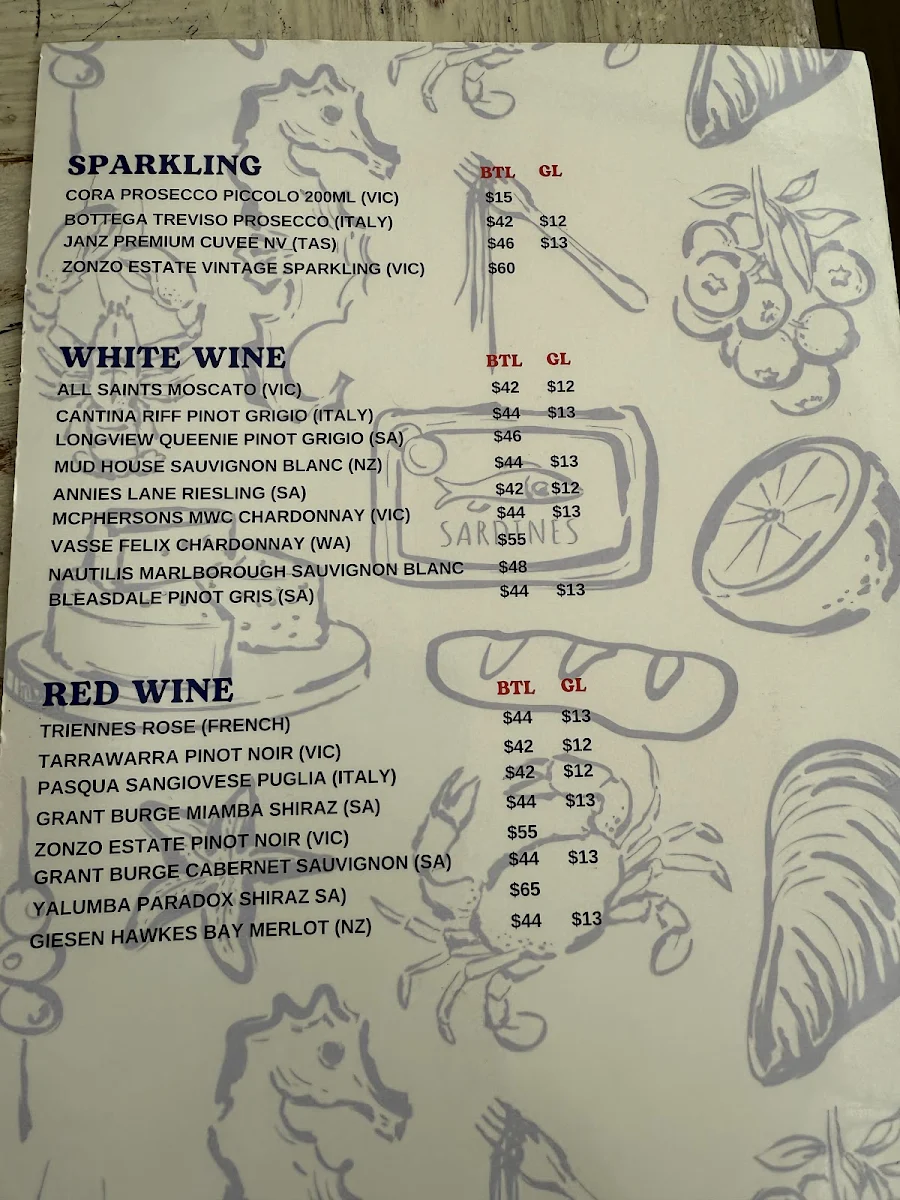 SPARKLING BTL GL
CORA PROSECCO PICCOLO 200ML (VIC) $15
BOTTEGA TREVISO PROSECCO (ITALY) $42 $12
JANZ PREMIUM CUVEE NV (TAS) $46 $13
ZONZO ESTATE VINTAGE SPARKLING (VIC) $60
WHITE WINE BTL GL
ALL SAINTS MOSCATO (VIC) $42 $12
CANTINA RIFF PINOT GRIGIO (ITALY) $44 $13
LONGVIEW QUEENIE PINOT GRIGIO (SA) $46
MUD HOUSE SAUVIGNON BLANC (NZ) $44 $13
ANNIES LANE RIESLING (SA) $42 $12
MCPHERSONS MWC CHARDONNAY (VIC) $44 $13
SARDINES
VASSE FELIX CHARDONNAY (WA) $55
NAUTILIS MARLBOROUGH SAUVIGNON BLANC $48
BLEASDALE PINOT GRIS (SA) $44 $13
RED WINE BTL GL
TRIENNES ROSE (FRENCH) $44 $13
TARRAWARRA PINOT NOIR (VIC) $42 $12
PASQUA SANGIOVESE PUGLIA (ITALY) $42 $12
GRANT BURGE MIAMBA SHIRAZ (SA) $44 $13
ZONZO ESTATE PINOT NOIR (VIC) $55
GRANT BURGE CABERNET SAUVIGNON (SA) $44 $13
YALUMBA PARADOX SHIRAZ SA) $65
GIESEN HAWKES BAY MERLOT (NZ) $44 $13